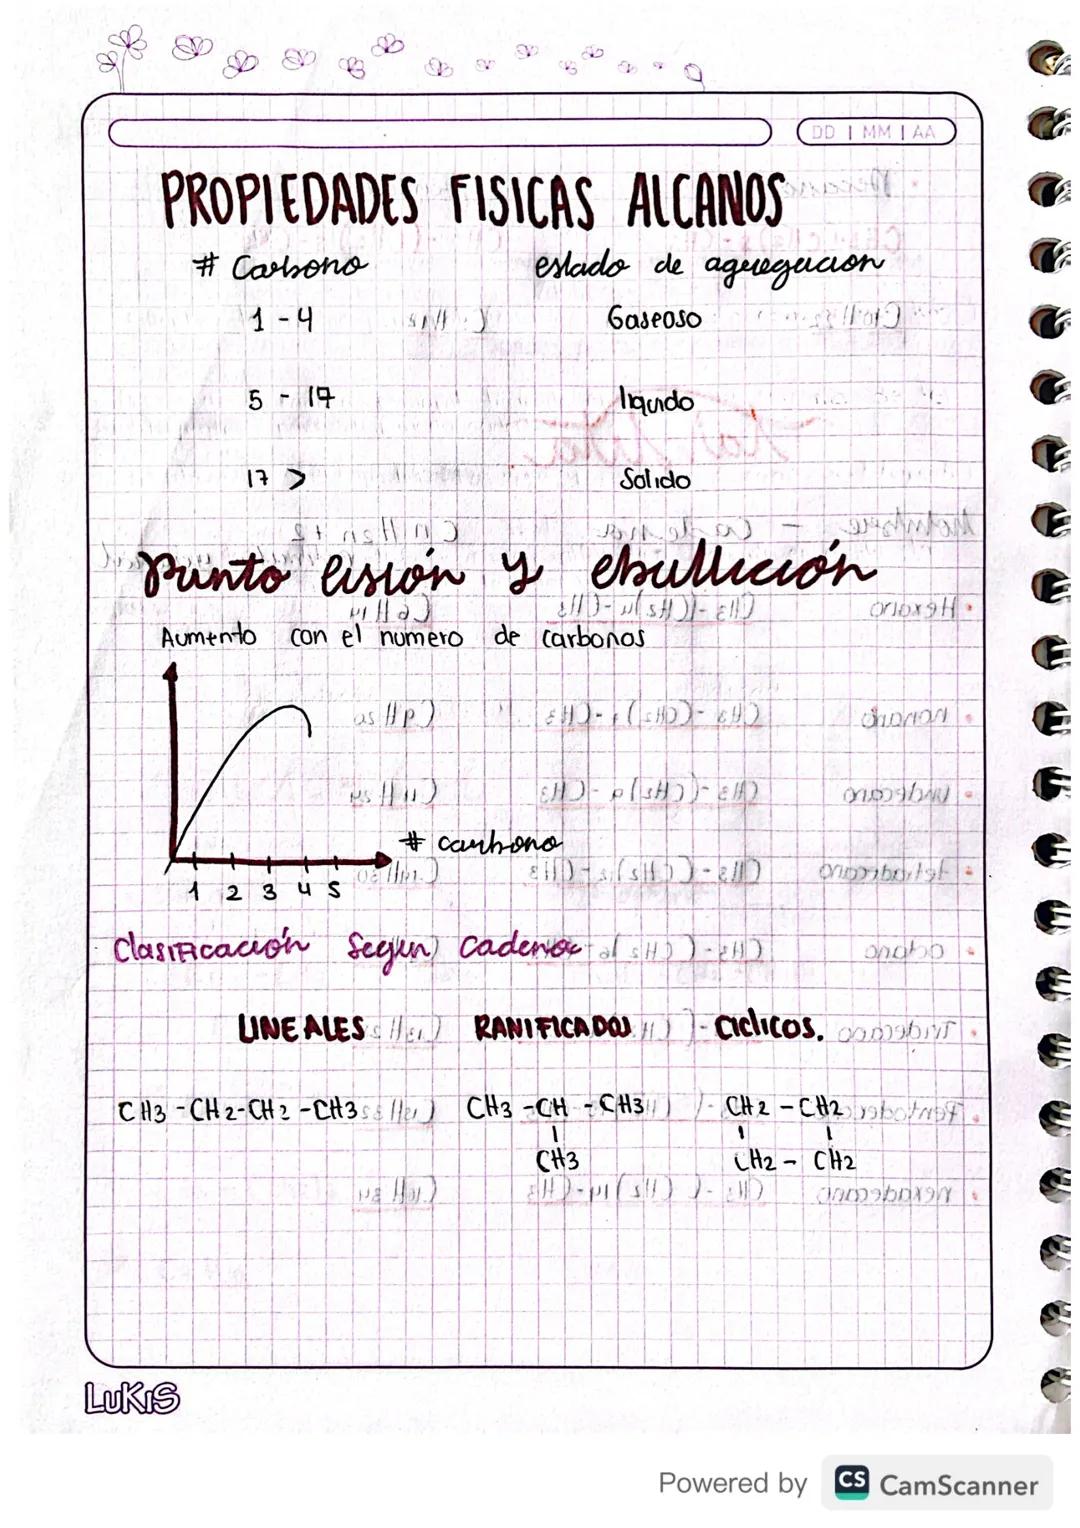 DD | MM | AA
PROPIEDADES FISICAS ALCANOS
# Carbono estado de agregacion
1 - 4 Gaseoso
5 - 17 liquido
17 > Solido
Punto fisión y ebullición
Aumento con el numero de carbonos
# carbono
1 2 3 4 5
Clasificación Segun Cadena
LINEALES RANIFICADOS CICLICOS.
CH3 - CH2 - CH2 - CH3 CH3 - CH - CH3 CH2 - CH2
CH3 CH2 - CH2
LUKIS
Powered by CS CamScanner